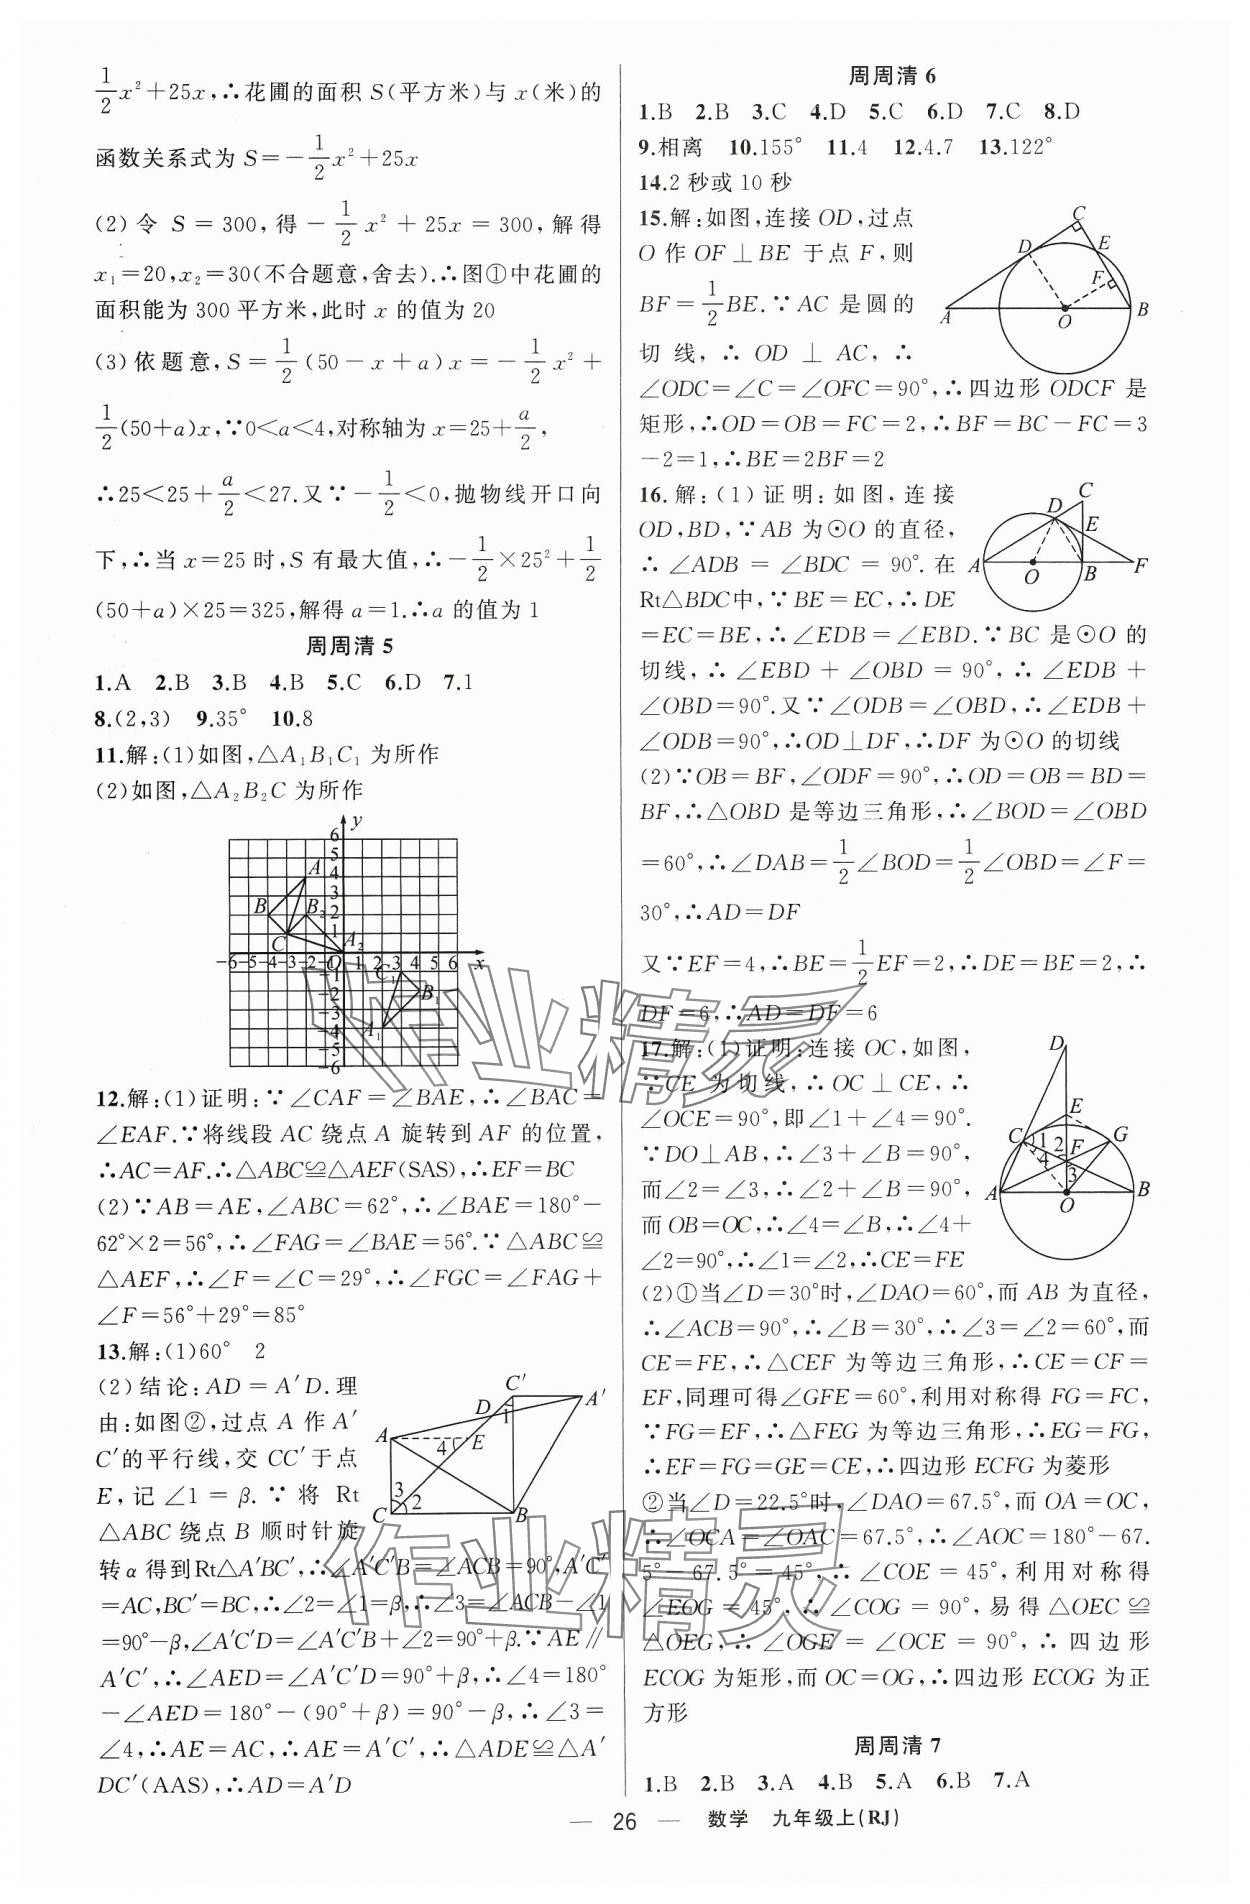 1/2x²+25x,∴花圃的面积S(平方米)与x(米)的
函数关系式为S=-1/2x²+25x
(2)令S=300,得-1/2x²+25x=300,解得
x₁=20,x₂=30(不合题意,舍去).∴图①中花圃的
面积能为300平方米,此时x的值为20
(3)依题意,S=1/2(50-x+a)x=-1/2x²+
1/2(50+a)x,∵0<a<4,对称轴为x=25+a/2,
∴25<25+a/2<27.又∵-1/2<0,抛物线开口向
下,∴当x=25时,S有最大值,∴-1/2×25²+1/2
(50+a)×25=325,解得a=1.∴a的值为1
周周清5
1.A 2.B 3.B 4.B 5.C 6.D 7.1
8.(2,3) 9.35° 10.8
11.解:(1)如图,△A₁B₁C₁为所作
(2)如图,△A₂B₂C为所作
12.解:(1)证明:∵∠CAF=∠BAE,∴∠BAC=
∠EAF.∵将线段AC绕点A旋转到AF的位置,
∴AC=AF.∴△ABC≌△AEF(SAS),∴EF=BC
(2)∵AB=AE,∠ABC=62°,∴∠BAE=180°-
62°×2=56°,∴∠FAG=∠BAE=56°.∵△ABC≌
△AEF,∴∠F=∠C=29°,∴∠FGC=∠FAG+
∠F=56°+29°=85°
13.解:(1)60° 2
(2)结论:AD=A′D.理
由:如图②,过点A作A′
C′的平行线,交CC′于点
E,记∠1=β.∵将Rt
△ABC绕点B顺时针旋
转α得到Rt△A′BC′,∴∠A′C′B=∠ACB=90°,A′C′
=AC,BC′=BC,∴∠2=∠1=β,∴∠3=∠ACB-∠1
=90°-β,∠A′C′D=∠A′C′B+∠2=90°+β.∵AE∥
A′C′,∴∠AED=∠A′C′D=90°+β,∴∠4=180°
-∠AED=180°-(90°+β)=90°-β,∴∠3=
∠4,∴AE=AC,∴AE=A′C′,∴△ADE≌△A′
DC′(AAS),∴AD=A′D
周周清6
1.B 2.B 3.C 4.D 5.C 6.D 7.C 8.D
9.相离 10.155° 11.4 12.4.7 13.122°
14.2秒或10秒
15.解:如图,连接OD,过点
O作OF⊥BE于点F,则
BF=1/2BE.∵AC是圆的
切线,∴OD⊥AC,∴
∠ODC=∠C=∠OFC=90°,∴四边形ODCF是
矩形,∴OD=OB=FC=2,∴BF=BC-FC=3
-2=1,∴BE=2BF=2
16.解:(1)证明:如图,连接
OD,BD,∵AB为⊙O的直径,
∴∠ADB=∠BDC=90°.在
Rt△BDC中,∵BE=EC,∴DE
=EC=BE,∴∠EDB=∠EBD.∵BC是⊙O的
切线,∴∠EBD+∠OBD=90°,∴∠EDB+
∠OBD=90°.又∵∠ODB=∠OBD,∴∠EDB+
∠ODB=90°,∴OD⊥DF,∴DF为⊙O的切线
(2)∵OB=BF,∠ODF=90°,∴OD=OB=BD=
BF,∴△OBD是等边三角形,∴∠BOD=∠OBD
=60°,∴∠DAB=1/2∠BOD=1/2∠OBD=∠F=
30°,∴AD=DF
又∵EF=4,∴BE=1/2EF=2,∴DE=BE=2,∴
DF=6,∴AD=DF=6
17.解:(1)证明:连接OC,如图,
∵CE为切线,∴OC⊥CE,∴
∠OCE=90°,即∠1+∠4=90°.
∵DO⊥AB,∴∠3+∠B=90°,
而∠2=∠3,∴∠2+∠B=90°,
而OB=OC,∴∠4=∠B,∴∠4+
∠2=90°,∴∠1=∠2,∴CE=FE
(2)①当∠D=30°时,∠DAO=60°,而AB为直径,
∴∠ACB=90°,∴∠B=30°,∴∠3=∠2=60°,而
CE=FE,∴△CEF为等边三角形,∴CE=CF=
EF,同理可得∠GFE=60°,利用对称得FG=FC,
∵FG=EF,∴△FEG为等边三角形,∴EG=FG,
∴EF=FG=GE=CE,∴四边形ECFG为菱形
②当∠D=22.5°时,∠DAO=67.5°,而OA=OC,
∴∠OCA=∠OAC=67.5°,∴∠AOC=180°-67.
5°-67.5°=45°,∴∠COE=45°,利用对称得
∠EOG=45°,∴∠COG=90°,易得△OEC≌
△OEG,∴∠OGE=∠OCE=90°,∴四边形
ECOG为矩形,而OC=OG,∴四边形ECOG为正
方形
周周清7
1.B 2.B 3.A 4.B 5.A 6.B 7.A
— 26 — 数学 九年级上(RJ)
作业精灵
作业精灵